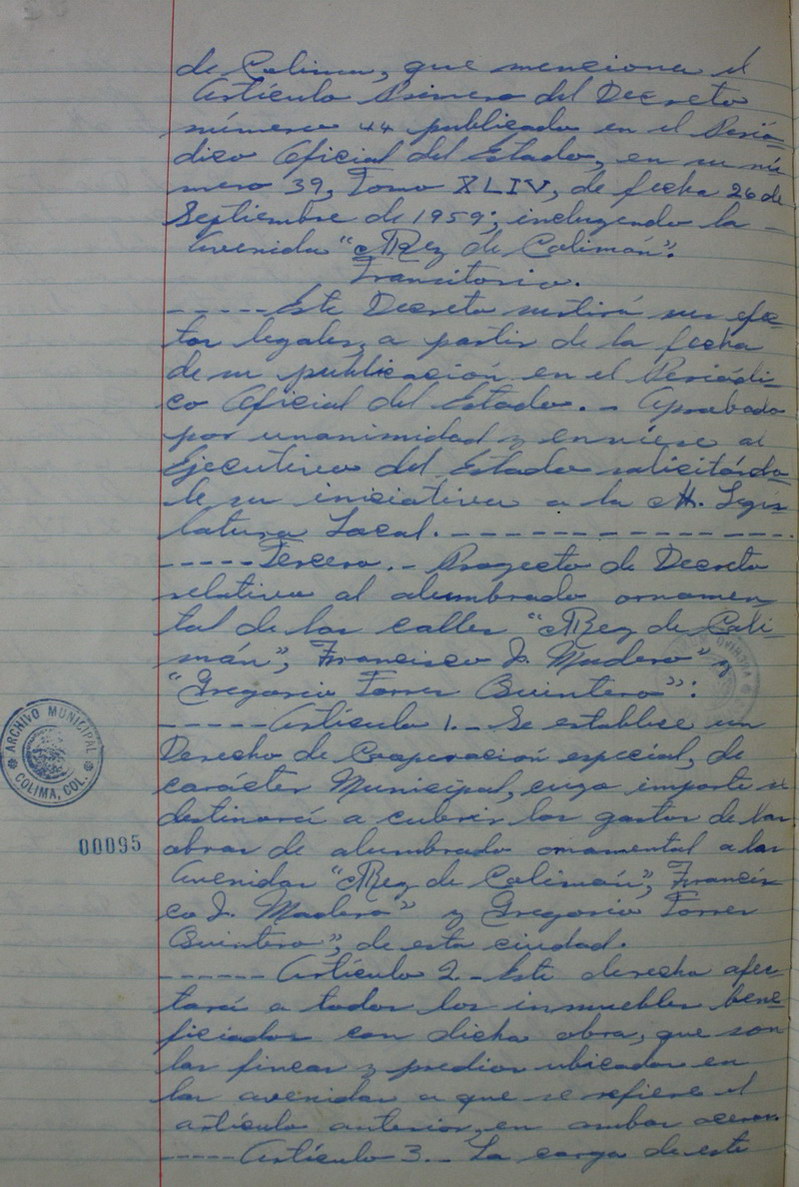 de Colima, que menciona el
Artículo Primero del Decreto
número 44 publicado en el Perió-
dico Oficial del Estado, en su nú-
mero 39, Tomo XLIV, de fecha 26 de
Septiembre de 1959; incluyendo la -
Avenida "Rey de Colimán".
Transitorio.
-----Este Decreto surtirá sus efec-
tos legales, a partir de la fecha
de su publicación en el Periódi-
co Oficial del Estado. - Aprobado
por unanimidad y envíese al
Ejecutivo del Estado solicitándo-
le su iniciativa a la H. Legis-
latura Local. - - - - - - - - - - - - - -
-----Tercero. - Proyecto de Decreto
relativo al alumbrado ornamen-
tal de las calles "Rey de Coli-
mán", Francisco I. Madero" y
"Gregorio Torres Quintero":
-----Artículo 1. - Se establece un
Derecho de Cooperación especial, de
carácter Municipal, cuyo importe se
destinará a cubrir los gastos de las
obras de alumbrado ornamental a las
Avenidas "Rey de Colimán", Francis-
co I. Madero" y Gregorio Torres
Quintero", de esta ciudad.
------Artículo 2. - Este derecho afec-
tará a todos los inmuebles bene-
ficiados con dicha obra, que son
las fincas y predios ubicados en
las avenidas a que se refiere el
artículo anterior, en ambas aceras.
-----Artículo 3. - La carga de este
ARCHIVO MUNICIPAL
COLIMA, COL.
00095